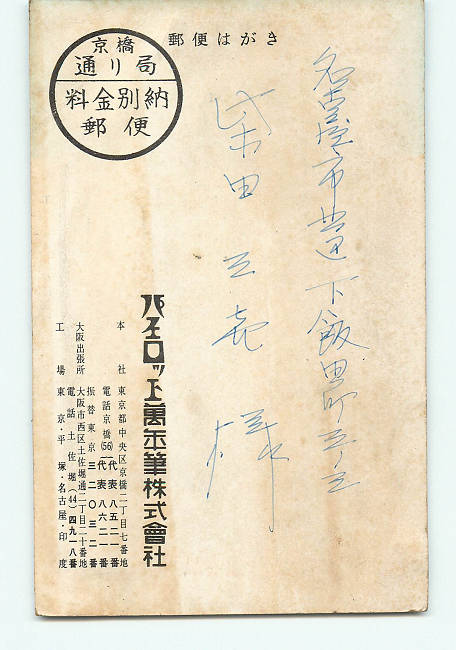 郵便はがき
京橋
通り局
料金別納
郵便
名古屋市 下飯田町
柴田 様
パイロット萬年筆株式會社
本社 東京都中央区京橋二丁目七番地
電話京橋(56)代表八五二一番
代表八六二一番
振替東京三二〇三二番
大阪出張所 大阪市西区土佐堀通二丁目二十番地
電話土佐堀(44)四九一八番
工場 東京・平塚・名古屋・印度